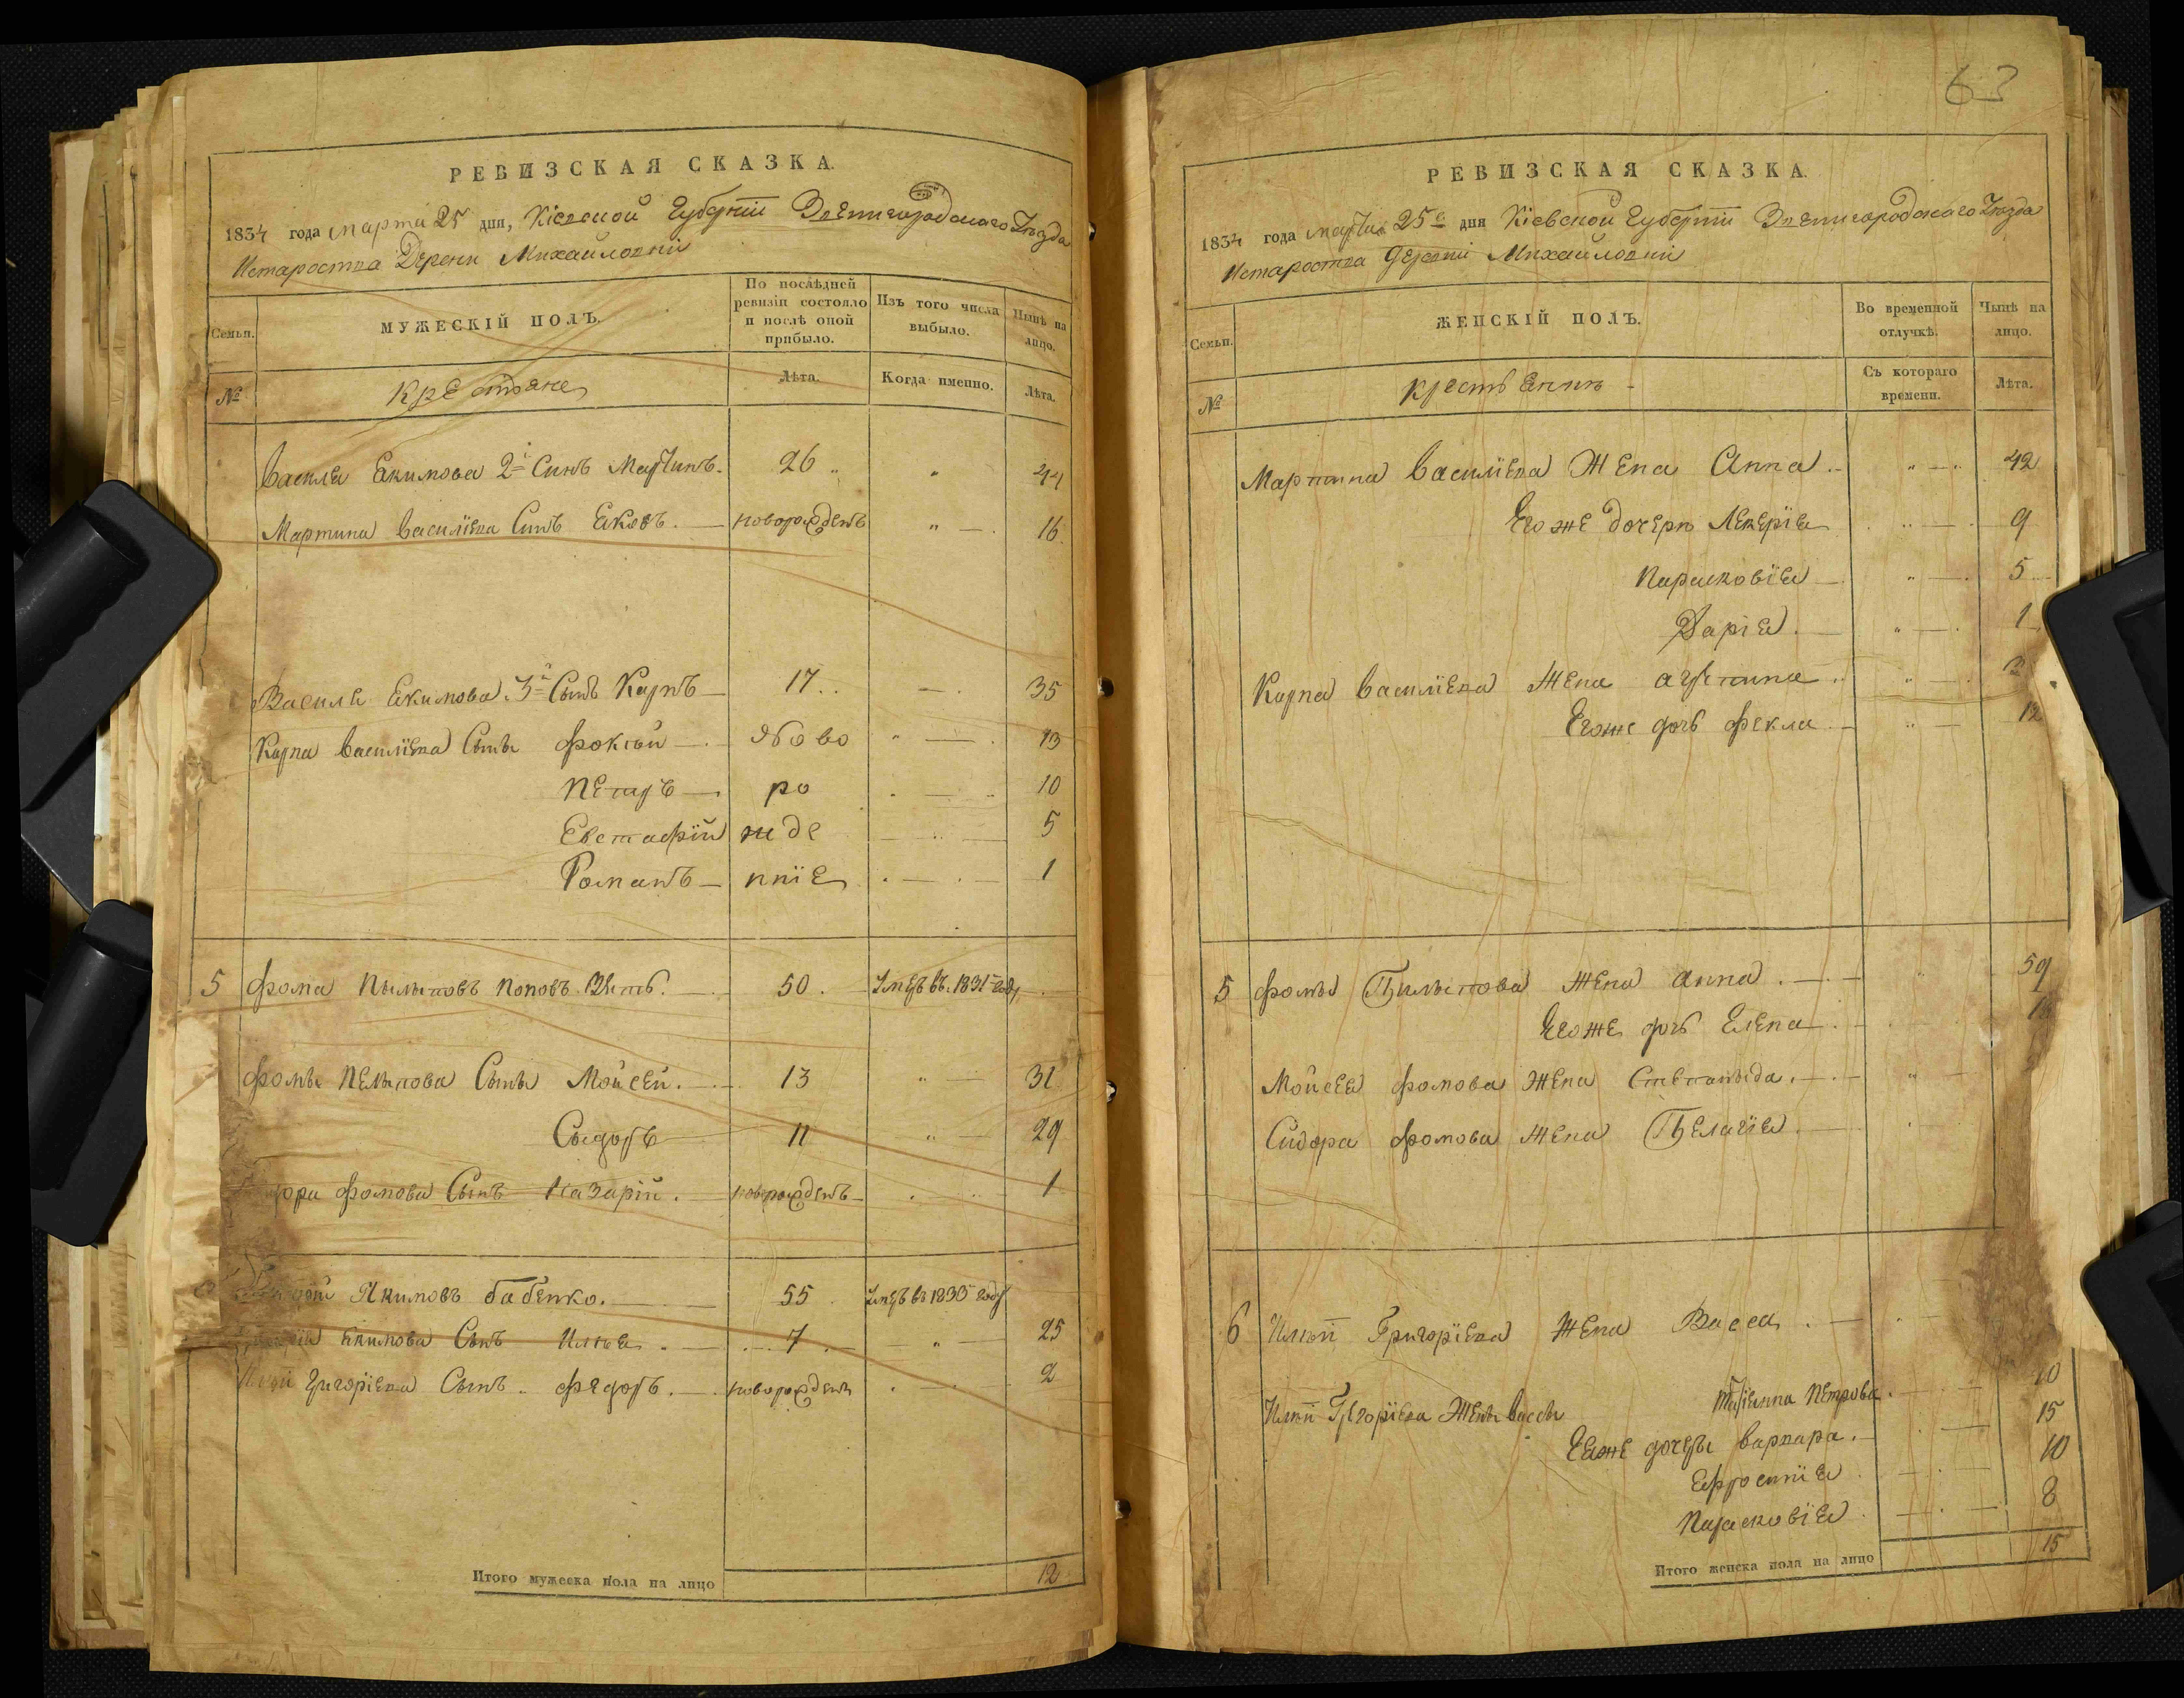 63
РЕВИЗСКАЯ СКАЗКА.
1834 года марта 25 дня, Кіевской Губерніи Звенигородскаго Уѣзда
Истароства Деревни Михайловки
Семьи. МУЖЕСКІЙ ПОЛЪ. По послѣдней ревизіи состояло и послѣ оной прибыло. Изъ того числа выбыло. Нынѣ на лицо.
№ Крестьяне Лѣта. Когда именно. Лѣта.
Василя Екимова 2й Синъ Мартинъ. 26 44
Мартина Василіева Синъ Ековъ. новорожденъ 16
Василя Екимова 3й Сынъ Карпъ 17 35
Карпа Василіева Сыны Фокий ново 13
Петръ ро 10
Евстафій жде
5
Романъ нніе 1
5 Фома Пылыповъ Поповъ Зять. 50. Умеръ въ 1831 году
Фомы Пелыпова Сыны Мойсей. 13 31
Сыдоръ 11 29
Фомова Сынъ Назарій. новорожденъ 1
Якимовъ бабенко. 55 Умеръ въ 1833 году
Екимова Сынъ Илья 7 25
Григоріева Сынъ. Федоръ. новорожденъ 2
Итого мужеска пола на лицо 12
РЕВИЗСКАЯ СКАЗКА.
1834 года марта 25го дня Кіевской Губерніи Звенигородскаго Уѣзда
Истароства Деревни Михайловки
Семьи. ЖЕНСКІЙ ПОЛЪ. Во временной отлучкѣ. Нынѣ на лицо.
№ Крестьянкѣ Съ котораго времени. Лѣта.
Мартина Василіева Жена Анна. 42
Его же дочери Лекерія 9
Парасковія 5
Дарія. 1
Карпа Василіева Жена
Егоже дочъ Фекла 12
5 Фомы Пилыпова Жена Анна. 59
Егоже дочъ Елена.
Мойсея Фомова Жена Степаныда.
Сидора Фомова Жена Пелагія.
6 Илій Григоріева Жена Васса.
Илій Григоріева Жены Вассы Петрова. 10
Егоже дочеры Варвара. 15
Ефросинія 10
Парасковія 8
Итого женска пола на лицо 15